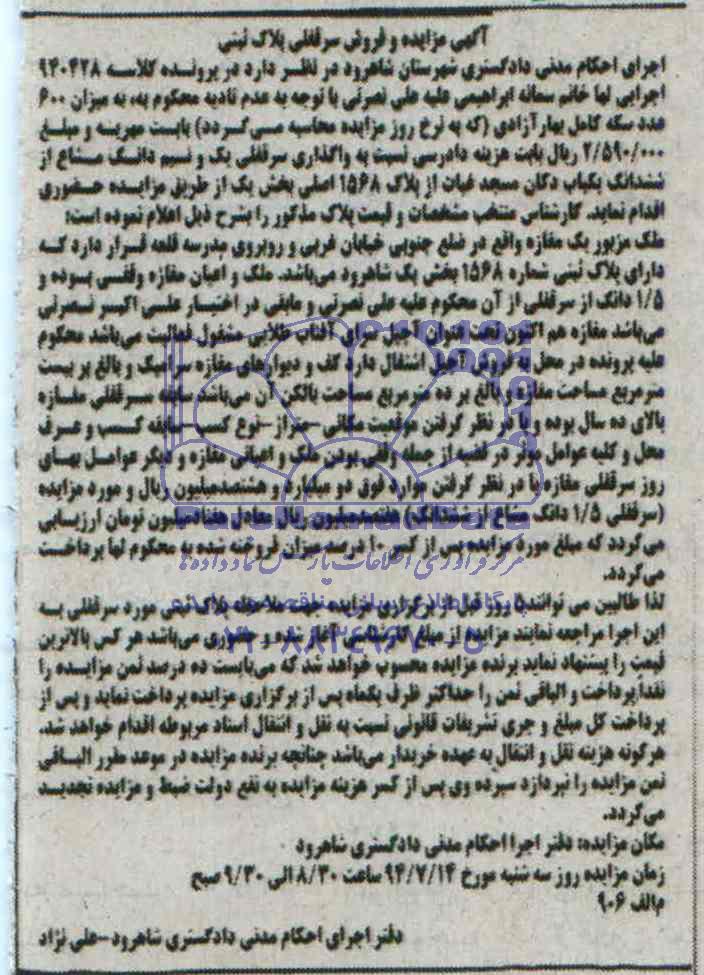 آگهی مزایده و فروش سرقفلی پلاک ثبتی
اجرای احکام مدنی دادگستری شهرستان شاهرود در نظر دارد در پرونده کلاسه ۹۴۰۴۲۸
اجرایی لها خانم سمانه ابراهیمی علیه علی نصرتی با توجه به عدم تادیه محکوم به، به میزان ۶۰۰
عدد سکه کامل بهار آزادی (که به نرخ روز مزایده محاسبه می گردد) بابت مهریه و مبلغ
۲/۵۹۰/۰۰۰ ریال بابت هزینه دادرسی نسبت به واگذاری سرقفلی یک و نیم دانگ مشاع از
ششدانگ یکباب دکان مسجد غیاث از پلاک ۱۵۶۸ اصلی بخش یک از طریق مزایده حضوری
اقدام نماید. کارشناس منتخب مشخصات و قیمت پلاک مذکور را بشرح ذیل اعلام نموده است:
ملک مزبور یک مغازه واقع در ضلع جنوبی خیابان غربی و روبروی مدرسه قلعه قرار دارد که
دارای پلاک ثبتی شماره ۱۵۶۸ بخش یک شاهرود می‌باشد. ملک و اعیان مغازه وقفی بوده و
۱/۵ دانگ از سرقفلی از آن محکوم علیه علی نصرتی و مابقی در اختیار علی اکبر نصرتی
می‌باشد مغازه هم اکنون تحت عنوان آجیل سرای آفتاب طلایی مشغول فعالیت می‌باشد محکوم
علیه پرونده در محل به فروش آجیل اشتغال دارد کف و دیوارهای مغازه سرامیک و بالغ بر بیست
مترمربع مساحت مغازه و بالغ بر ده مترمربع مساحت بالکن آن می‌باشد سابقه سرقفلی مغازه
بالای ده سال بوده و با در نظر گرفتن موقعیت مکانی-متراژ-نوع کسب-سابقه کسب و عرف
محل و کلیه عوامل موثر در قضیه از جمله وقفی بودن ملک و اعیانی مغازه و دیگر عوامل بهای
روز سرقفلی مغازه با در نظر گرفتن موارد فوق دو میلیارد و هشتصدمیلیون ریال و مورد مزایده
(سرقفلی ۱/۵ دانگ مشاع از ششدانگ) هفتصدمیلیون ریال معادل هفتادمیلیون تومان ارزیابی
می گردد که مبلغ مورد مزایده پس از کسر ۱۰ درصد میزان فروخته شده به محکوم لها پرداخت
می گردد.
لذا طالبین می توانند ۵ روز قبل از برگزاری مزایده جهت ملاحظه پلاک ثبتی مورد سرقفلی به
این اجرا مراجعه نمایند مزایده از مبلغ کارشناسی آغاز شده و حضوری می‌باشد هر کس بالاترین
قیمت را پیشنهاد نماید برنده مزایده محسوب خواهد شد که می‌بایست ده درصد ثمن مزایده را
نقدا پرداخت و الباقی ثمن را حداکثر ظرف یکماه پس از برگزاری مزایده پرداخت نماید و پس از
پرداخت کل مبلغ و جری تشریفات قانونی نسبت به نقل و انتقال اسناد مربوطه اقدام خواهد شد.
هرگونه هزینه نقل و انتقال به عهده خریدار می‌باشد چنانچه برنده مزایده در موعد مقرر الباقی
ثمن مزایده را نپردازد سپرده وی پس از کسر هزینه مزایده به نفع دولت ضبط و مزایده تجدید
می گردد.
مکان مزایده: دفتر اجرا احکام مدنی دادگستری شاهرود
زمان مزایده روز سه شنبه مورخ ۹۴/۷/۱۴ ساعت ۸/۳۰ الی ۹/۳۰ صبح
م/الف ۹۰۶
دفتر اجرای احکام مدنی دادگستری شاهرود-علی نژاد